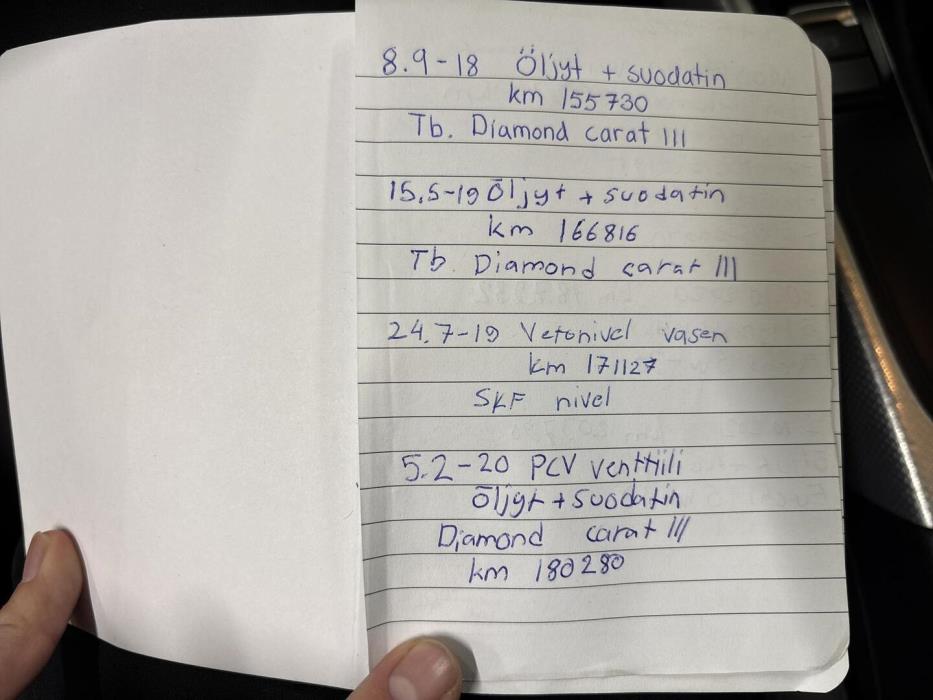 8.9-18 Öljyt + suodatin
km 155730
Tb. Diamond carat III
15.5-19 Öljyt + suodatin
km 166816
Tb. Diamond carat III
24.7-19 Vetonivel vasen
km 171127
SKF nivel
5.2-20 PCV venttiili
Öljyt + suodatin
Diamond carat III
km 180280